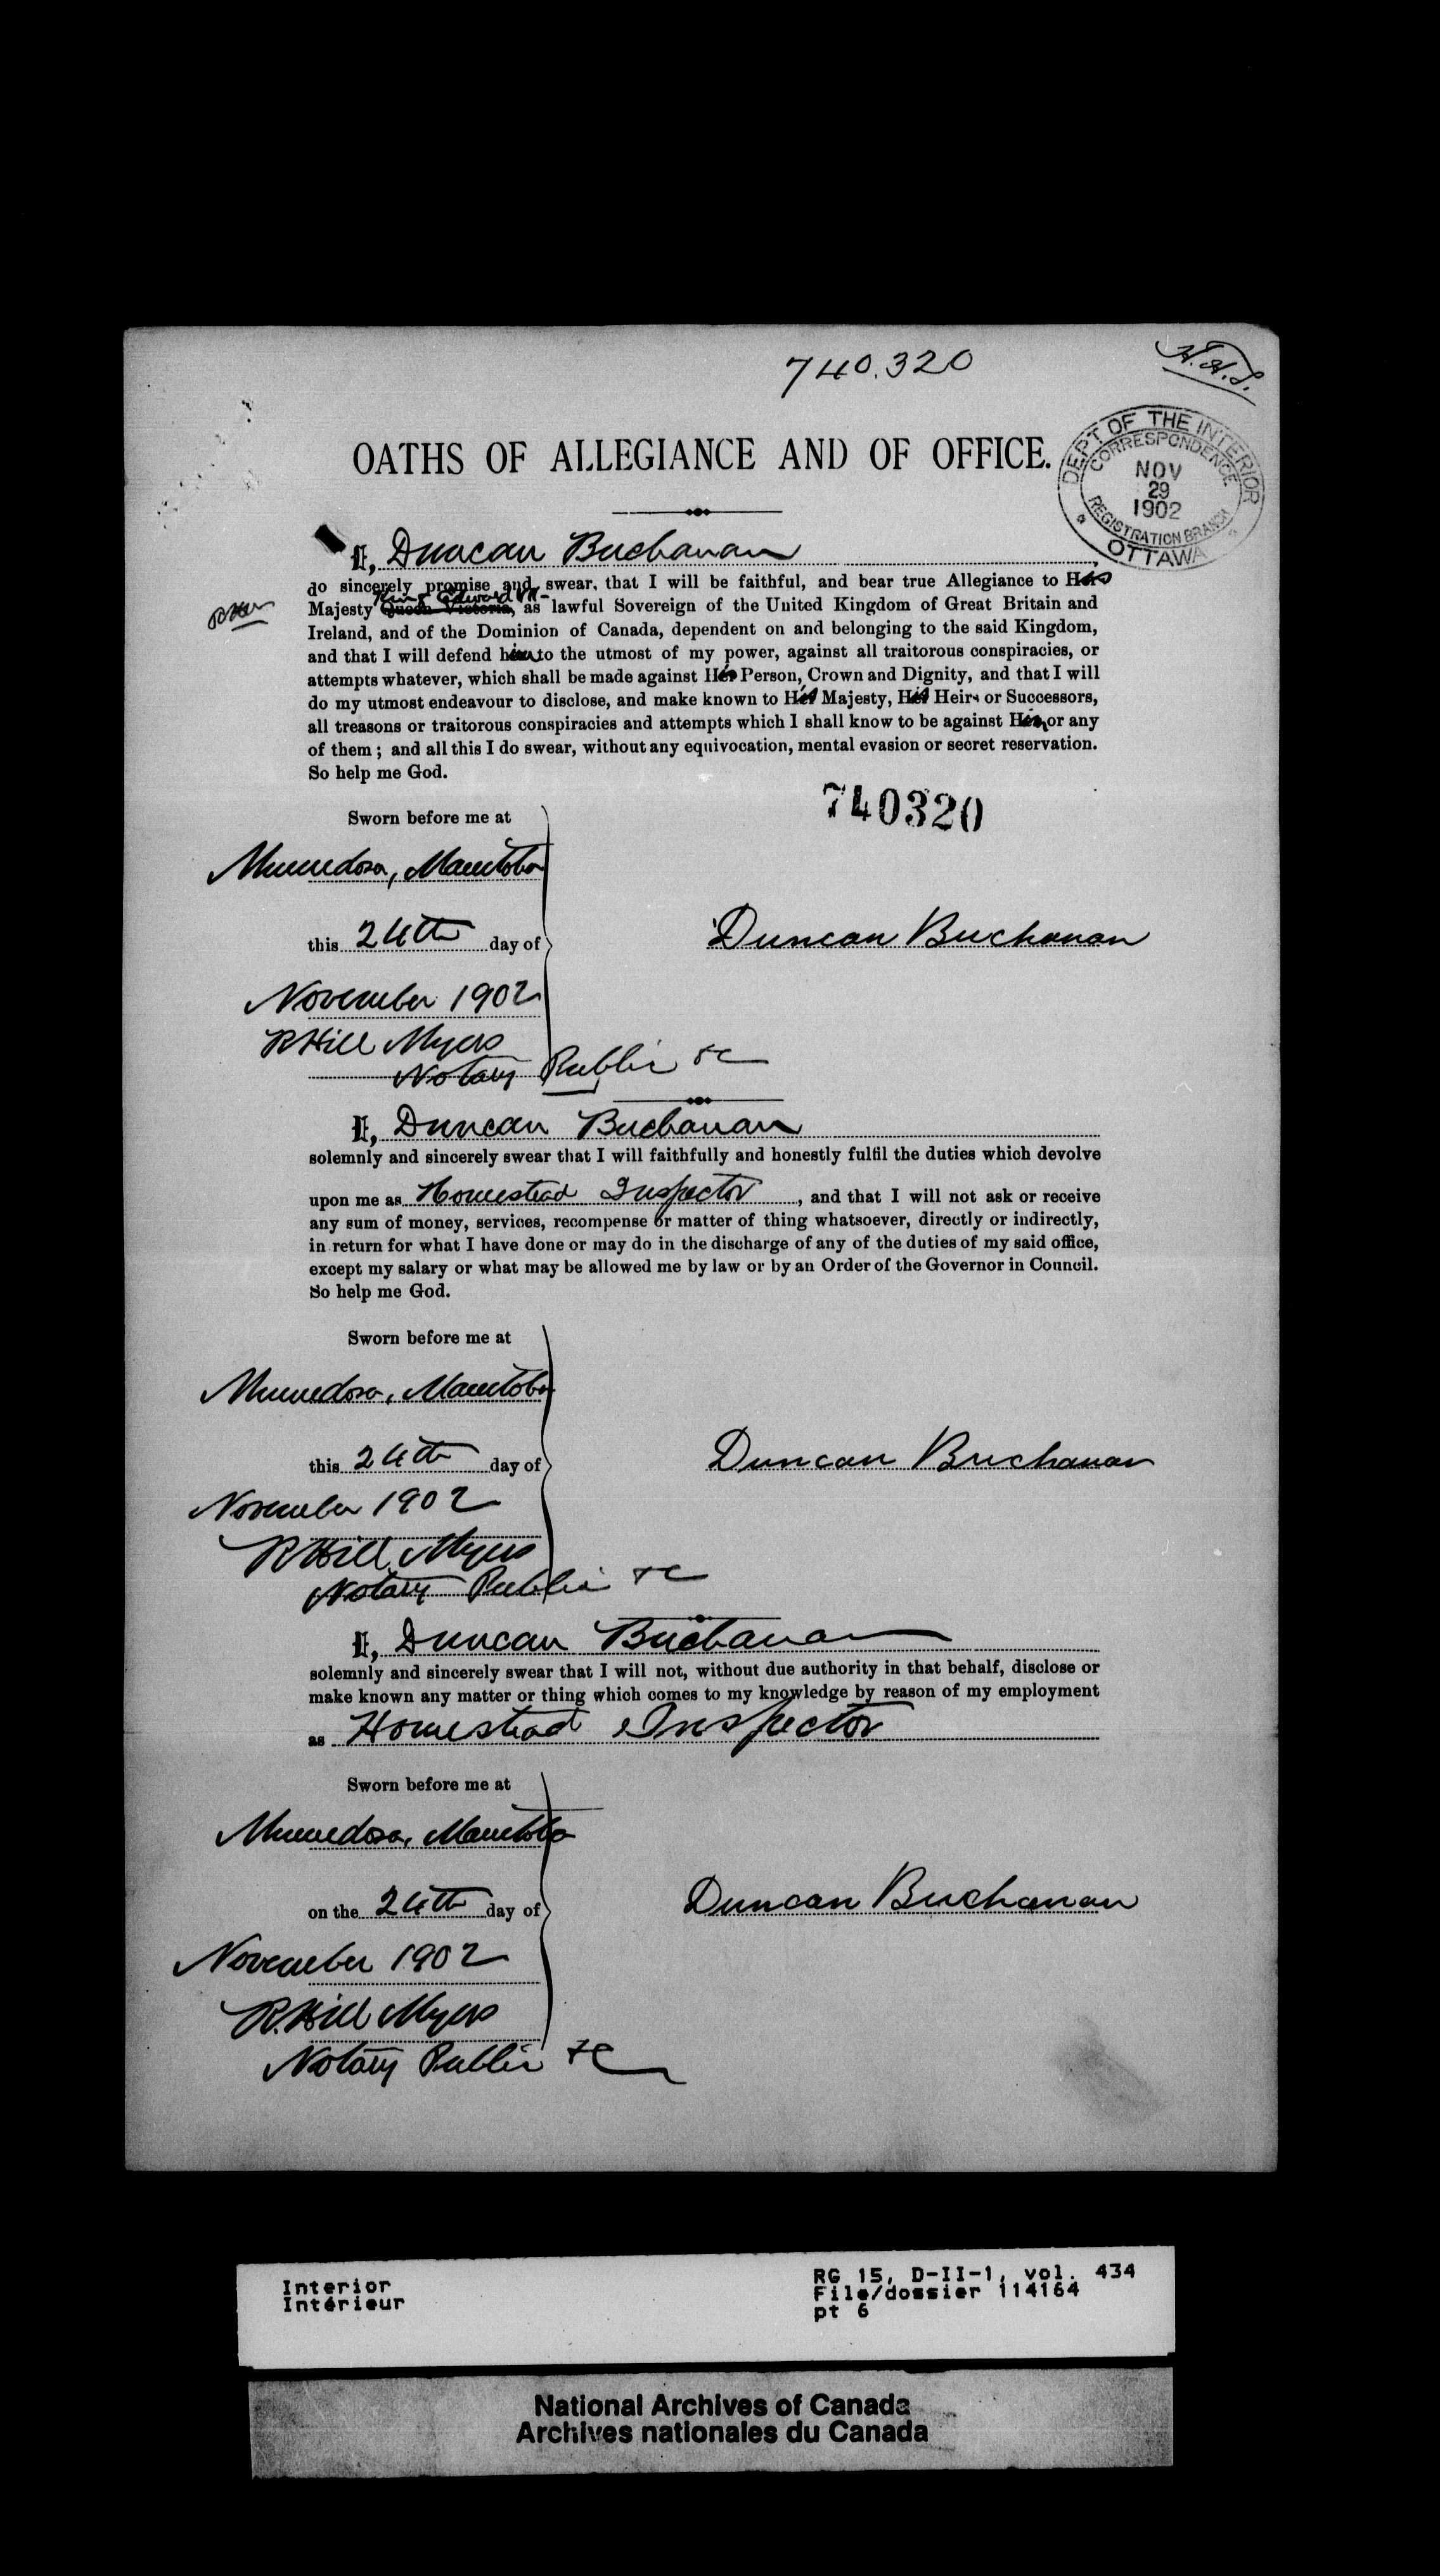 740.320
H.H.S.
OATHS OF ALLEGIANCE AND OF OFFICE.
DEPT OF THE INTERIOR
CORRESPONDENCE
NOV
29
1902
REGISTRATION BRANCH
OTTAWA
I, Duncan Buchanan
do sincerely promise and swear, that I will be faithful, and bear true Allegiance to His
King Edward VII
RHM
Majesty Queen Victoria, as lawful Sovereign of the United Kingdom of Great Britain and
Ireland, and of the Dominion of Canada, dependent on and belonging to the said Kingdom,
and that I will defend him to the utmost of my power, against all traitorous conspiracies, or
attempts whatever, which shall be made against His Person, Crown and Dignity, and that I will
do my utmost endeavour to disclose, and make known to His Majesty, His Heirs or Successors,
all treasons or traitorous conspiracies and attempts which I shall know to be against Him or any
of them; and all this I do swear, without any equivocation, mental evasion or secret reservation.
So help me God.
740320
Sworn before me at
Minnedosa, Manitoba
this 24th day of
Duncan Buchanan
November 1902
R Hill Myers
Notary Public &c
I, Duncan Buchanan
solemnly and sincerely swear that I will faithfully and honestly fulfil the duties which devolve
upon me as Homestead Inspector, and that I will not ask or receive
any sum of money, services, recompense or matter of thing whatsoever, directly or indirectly,
in return for what I have done or may do in the discharge of any of the duties of my said office,
except my salary or what may be allowed me by law or by an Order of the Governor in Council.
So help me God.
Sworn before me at
Minnedosa, Manitoba
this 24th day of
Duncan Buchanan
November 1902
R Hill Myers
Notary Public &c
I, Duncan Buchanan
solemnly and sincerely swear that I will not, without due authority in that behalf, disclose or
make known any matter or thing which comes to my knowledge by reason of my employment
as Homestead Inspector
Sworn before me at
Minnedosa, Manitoba
on the 24th day of
Duncan Buchanan
November 1902
R. Hill Myers
Notary Public &c
Interior
Intérieur
RG 15, D-II-1, vol. 434
File/dossier 114164
pt 6
National Archives of Canada
Archives nationales du Canada